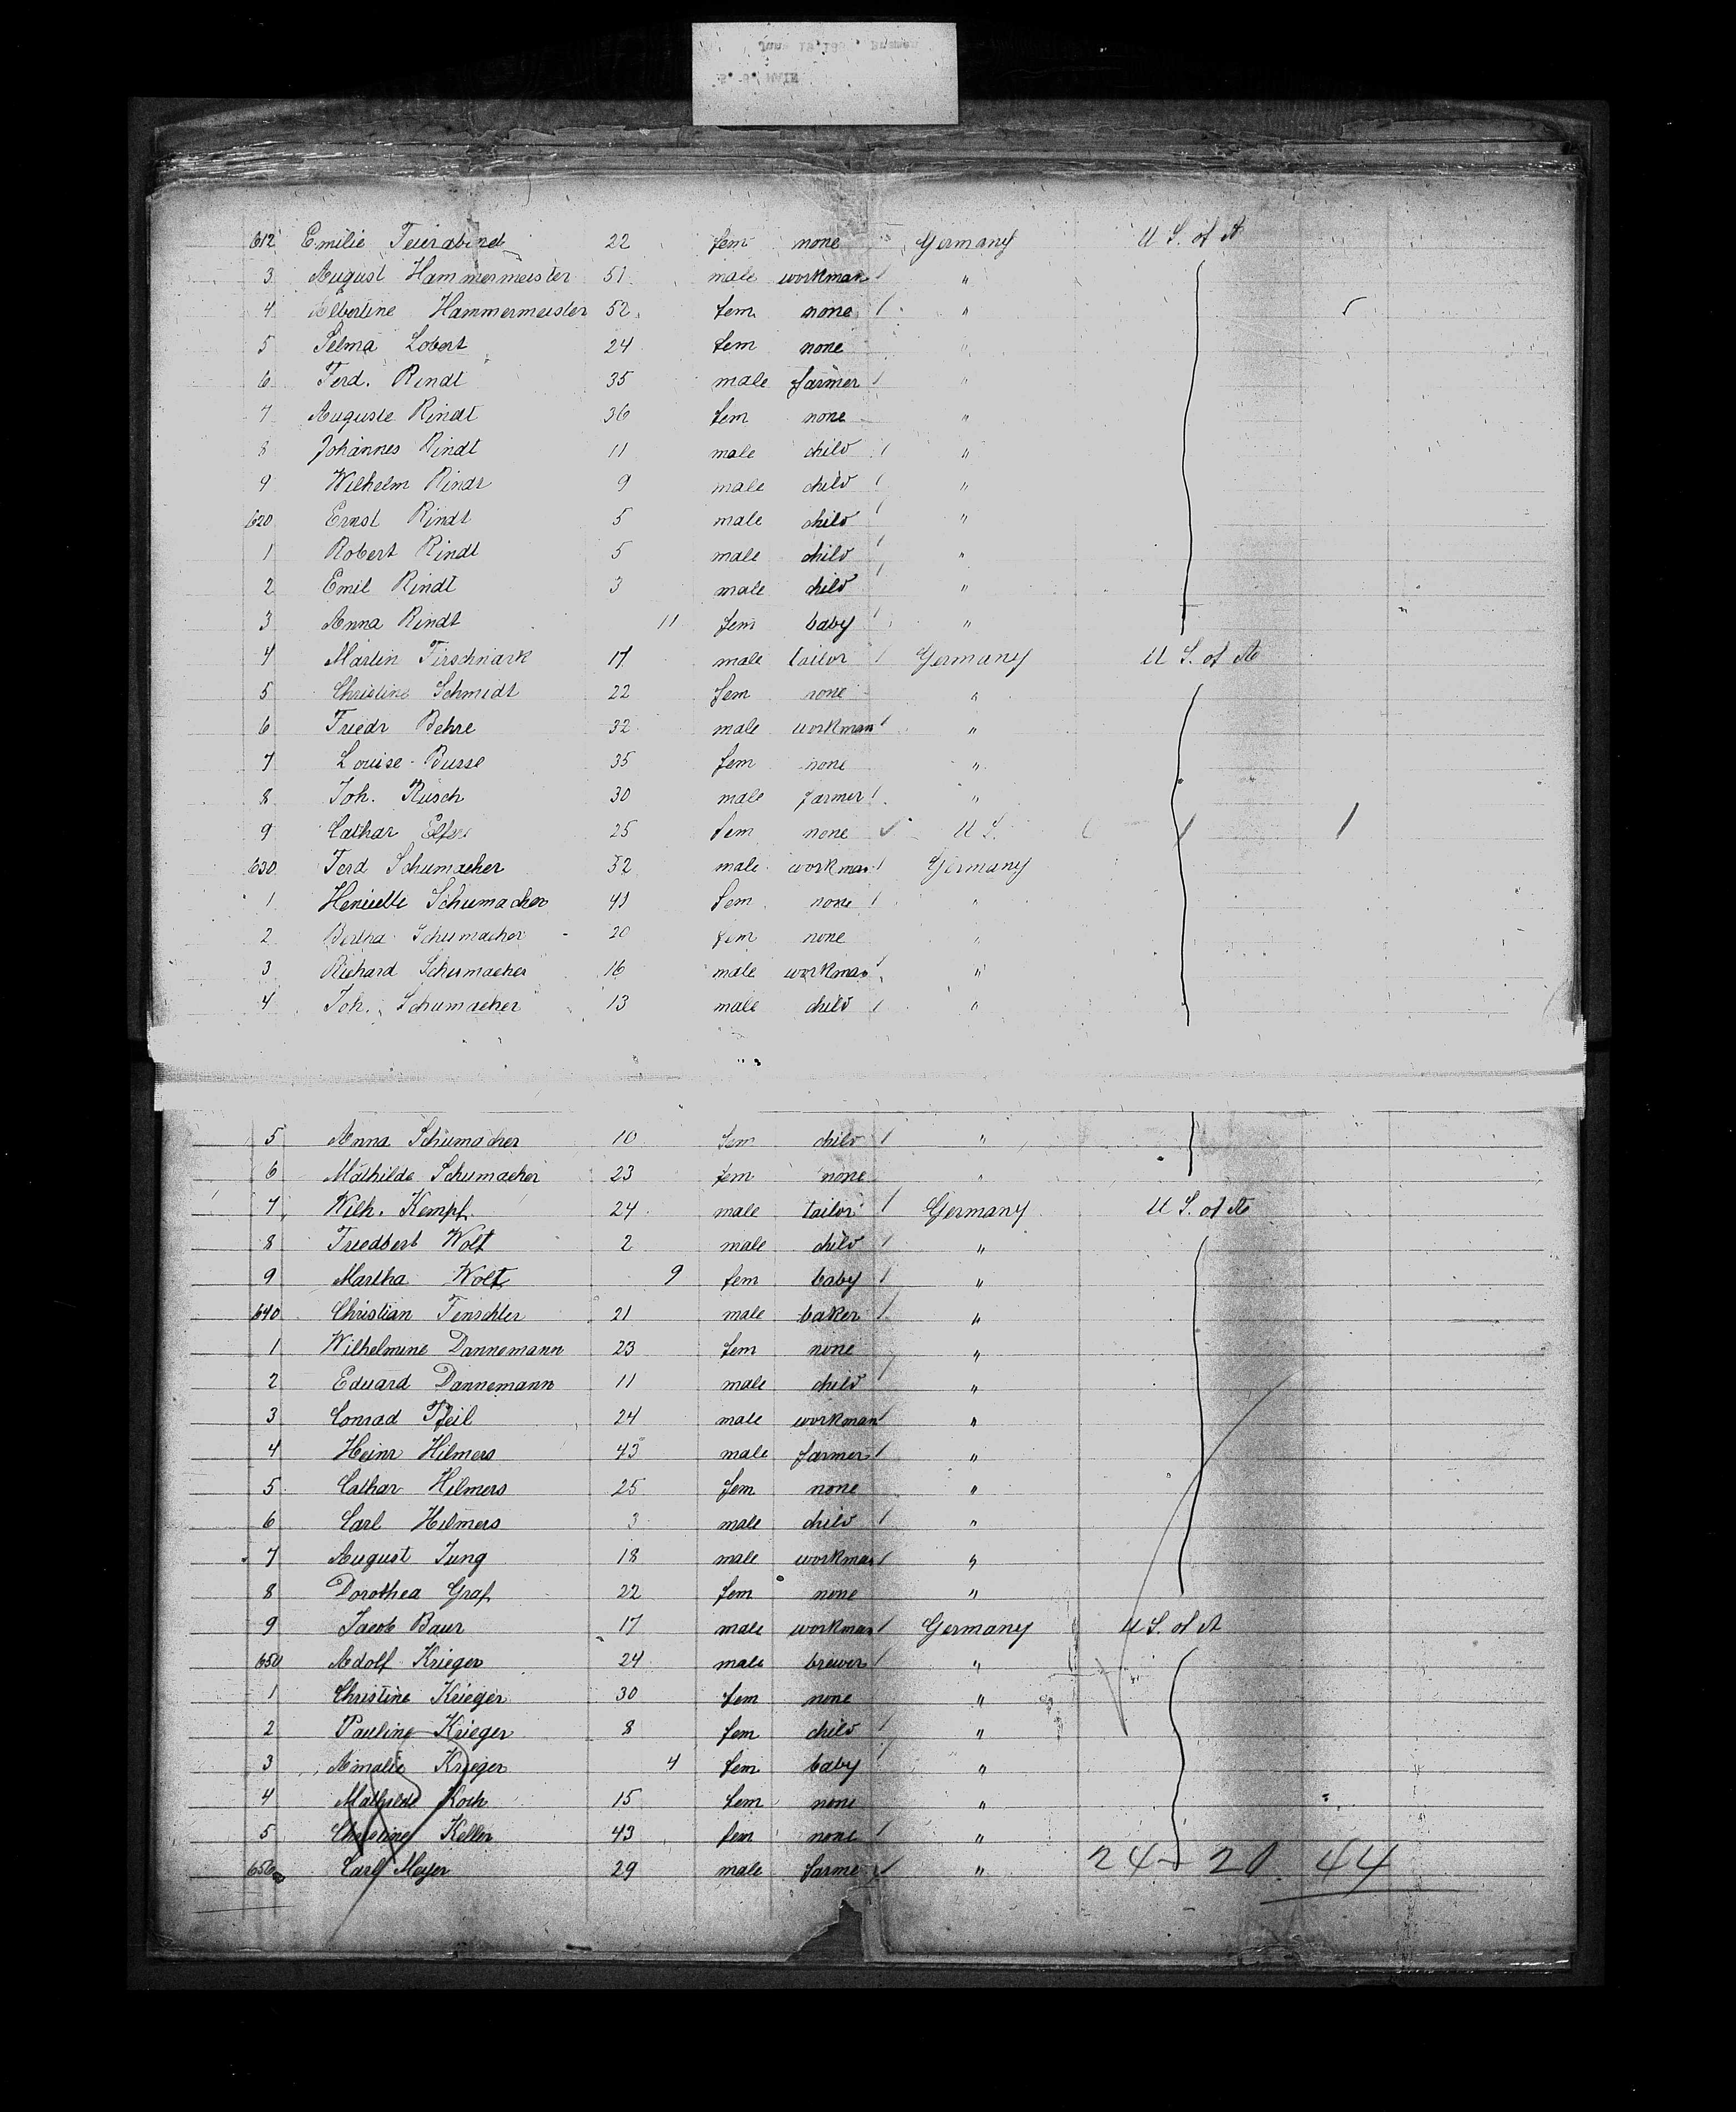 612 Emilie Feierabend 22 fem none Germany U S. of A
3 August Hammermeister 51 male workman "
4 Albertine Hammermeister 52 fem none "
5 Selma Lobert 24 fem none "
6 Ferd. Rindt 35 male farmer "
7 Auguste Rindt 36 fem none "
8 Johannes Rindt 11 male child "
9 Wilhelm Rindt 9 male child "
620 Ernst Rindt 5 male child "
1 Robert Rindt 5 male child "
2 Emil Rindt 3 male child "
3 Anna Rindt 11 fem baby "
4 Martin 17 male tailor Germany U S. of A
5 Christine Schmidt 22 fem none "
6 Friedr Behre 32 male workman "
7 Louise Busse 35 fem none "
8 Joh. Rusch 30 male farmer "
9 Cathar 25 fem none U S.
630 Ferd Schumacher 52 male workman Germany
1 Henriette Schumacher fem none "
2 Bertha Schumacher 20 fem none "
3 Richard Schumacher 16 male workman "
4 Joh. Schumacher 13 male child "
5 Anna Schumacher 10 fem child "
6 Mathilde Schumacher 23 fem none "
7 Wilh. Kempf 24 male tailor Germany U S. of A
8 Friedbert Wolf 2 male child "
9 Martha Wolf 9 fem baby "
640 Christian 21 male baker "
1 Wilhelmine Dannemann 23 fem none "
2 Eduard Dannemann 11 male child "
3 Conrad Pfeil 24 male workman "
4 Heinr Hilmers 43 male farmer "
5 Cathar Hilmers 25 fem none "
6 Carl Hilmers 3 male child "
7 August Jung 18 male workman "
8 Dorothea Graf 22 fem none "
9 Jacob Baur 17 male workman Germany U S. of A
650 Adolf Krieger 24 male brewer "
1 Christine Krieger 30 fem none "
2 Pauline Krieger 8 fem child "
3 Amalie Krieger 4 fem baby "
4 Mathilde Koch 15 fem none "
5 Christine Keller 43 fem none "
656 Carl Meyer 29 male farme "
24 - 20 44